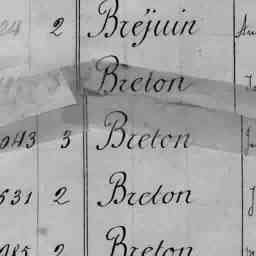 24 2 Bréjuin
3 Breton
043 3 Breton
531 2 Breton
985 2 Breton